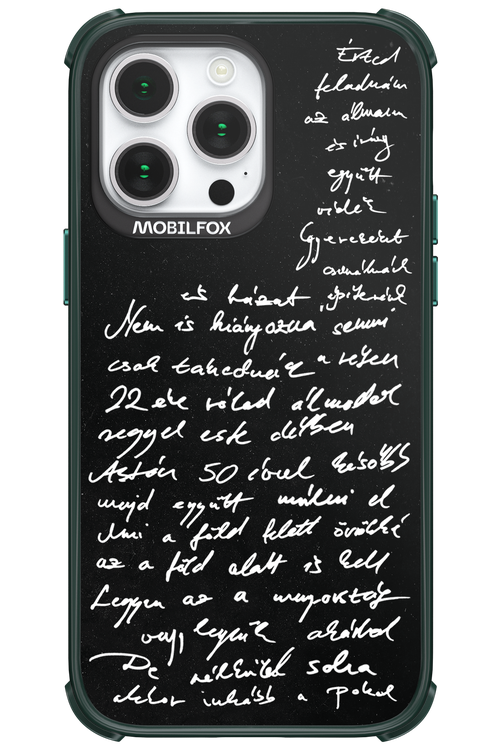 MOBILFOX
Érted
feladnám
az álmaim
és irány
együtt
vidék
Gyerekeket
csinálnánk
és házat építenénk
Nem is hiányozna semmi
csak takednác a rétjen
22 éve rólad álmodok
reggel este délben
Aztán 50 évvel később
majd együtt múlni el
Ami a föld felett örökké
az a föld alatt is kell
Legyen az a mennyország
vagy legyünk akárhol
De nélküled soha
akkor inkább a pokol